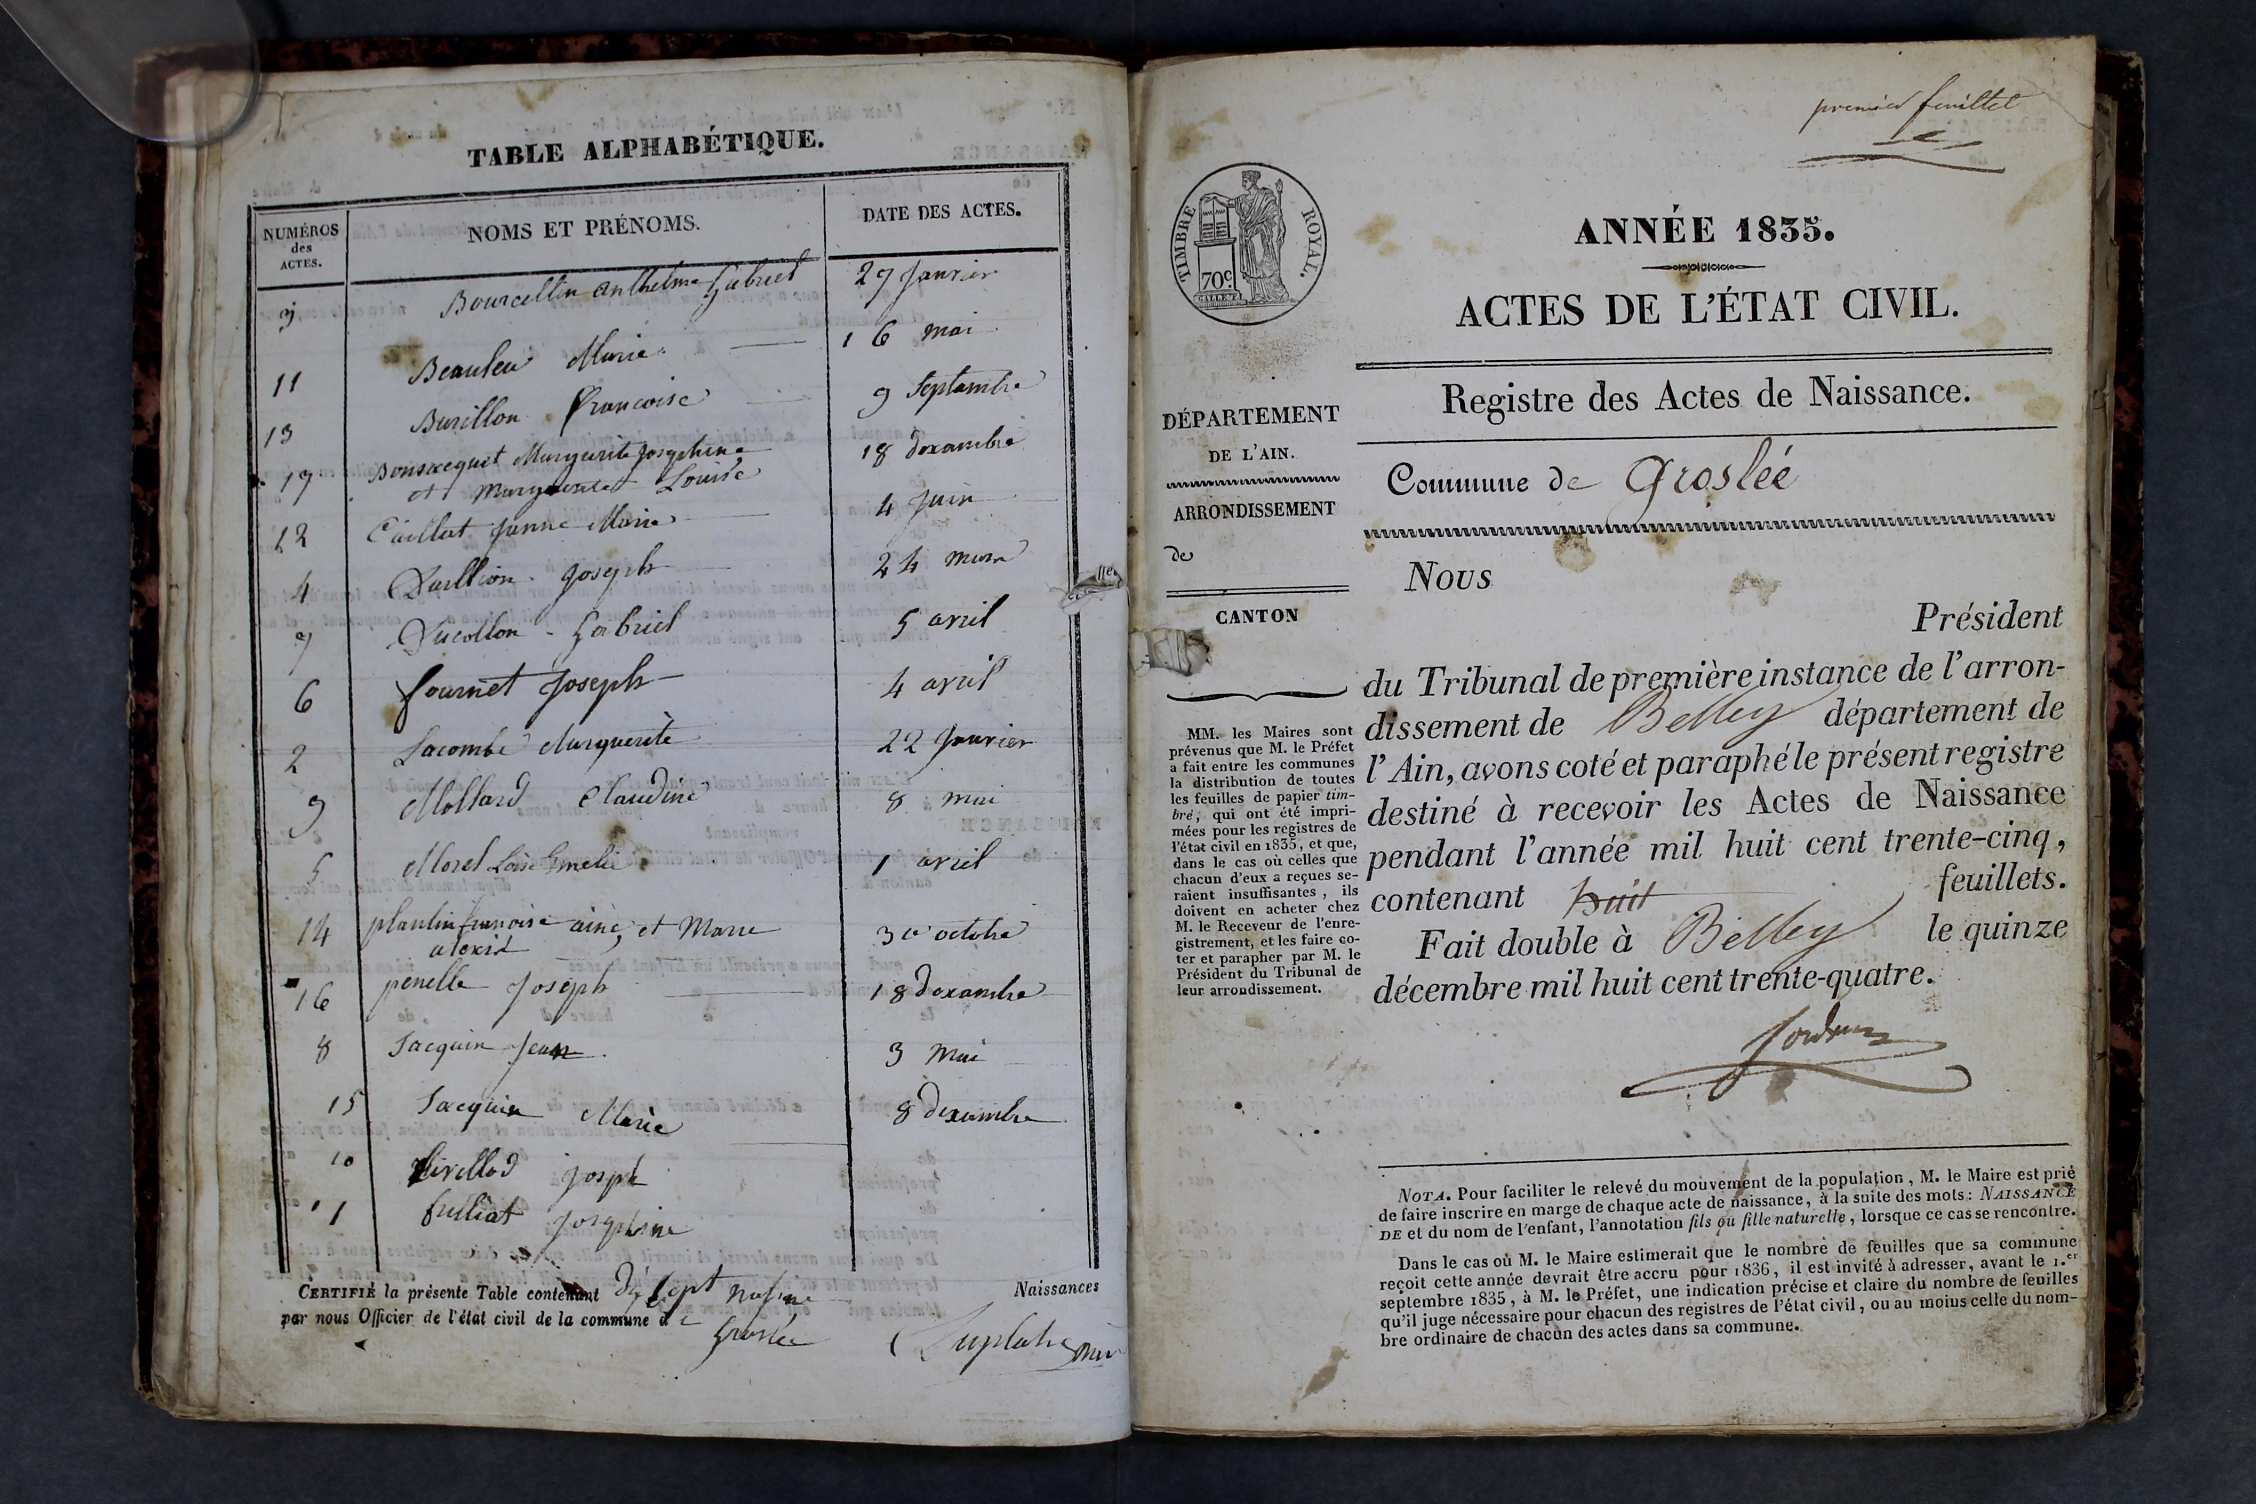 TABLE ALPHABÉTIQUE.
NUMÉROS des ACTES. NOMS ET PRÉNOMS. DATE DES ACTES.
3 Bourcellin Anthelme Gabriel 29 Janvier
11 Beauleu Marie 16 mai
13 Burillon Francoise 9 Septembre
17 Bonsacquet Marguerite Josephine 18 dexambre
et Marguerite Louise
12 Caillat Janne Marie 4 Juin
4 Joseph 24 mars
7 Ducollon Gabriel 5 avril
6 fournet Joseph 4 avril
2 Lacombe Marguerite 22 Janvier
9 Mollard Claudine 8 mai
5 Morel Emelie 1 avril
14 plantin francoise ainé, et Marie 30 octobre
alexis
16 penelle Joseph 18 dexambre
8 Jacquin Jean 3 Mai
15 Jacquin Marie 8 dexambre
10 Josph
1 Josephine
CERTIFIÉ la présente Table contenant Dix sept Naissances
par nous Officier de l'état civil de la commune de Groslée
premier feuillet
TIMBRE ROYAL.
70c
ANNÉE 1835.
ACTES DE L'ÉTAT CIVIL.
Registre des Actes de Naissance.
Commune de Groslée
DÉPARTEMENT
DE L'AIN.
ARRONDISSEMENT
de
CANTON
MM. les Maires sont
prévenus que M. le Préfet
a fait entre les communes
la distribution de toutes
les feuilles de papier tim-
bré, qui ont été impri-
mées pour les registres de
l'état civil en 1835, et que,
dans le cas où celles que
chacun d'eux a reçues se-
raient insuffisantes, ils
doivent en acheter chez
M. le Receveur de l'enre-
gistrement, et les faire co-
ter et parapher par M. le
Président du Tribunal de
leur arrondissement.
Nous
Président
du Tribunal de première instance de l'arron-
dissement de Belley département de
l'Ain, avons coté et paraphé le présent registre
destiné à recevoir les Actes de Naissance
pendant l'année mil huit cent trente-cinq,
contenant huit feuillets.
Fait double à Belley le quinze
décembre mil huit cent trente-quatre.
NOTA. Pour faciliter le relevé du mouvement de la population, M. le Maire est prié
de faire inscrire en marge de chaque acte de naissance, à la suite des mots : NAISSANCE
DE et du nom de l'enfant, l'annotation fils ou fille naturelle, lorsque ce cas se rencontre.
Dans le cas où M. le Maire estimerait que le nombre de feuilles que sa commune
reçoit cette année devrait être accru pour 1836, il est invité à adresser, avant le 1.er
septembre 1835, à M. le Préfet, une indication précise et claire du nombre de feuilles
qu'il juge nécessaire pour chacun des registres de l'état civil, ou au moins celle du nom-
bre ordinaire de chacun des actes dans sa commune.